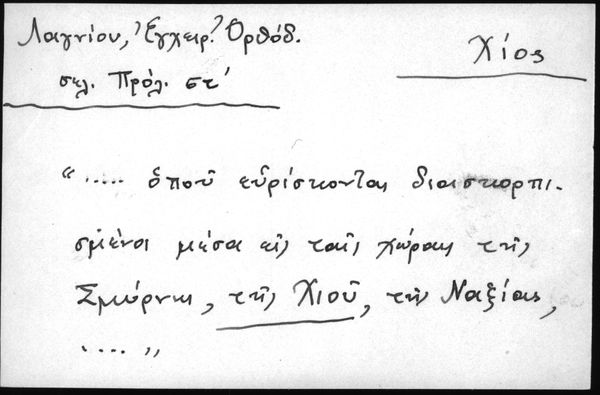 Λαγνίου, Ἐγχειρ. Ὀρθόδ.
σελ. Πρόλ. στ'
Χίος
“..... ὁποῦ εὑρίσκονται διασκορπι-
σμένοι μέσα εἰς ταῖς χώραις τῆς
Σμύρνης, τῆς Χιοῦ, τῆς Ναξίας,
..... ”